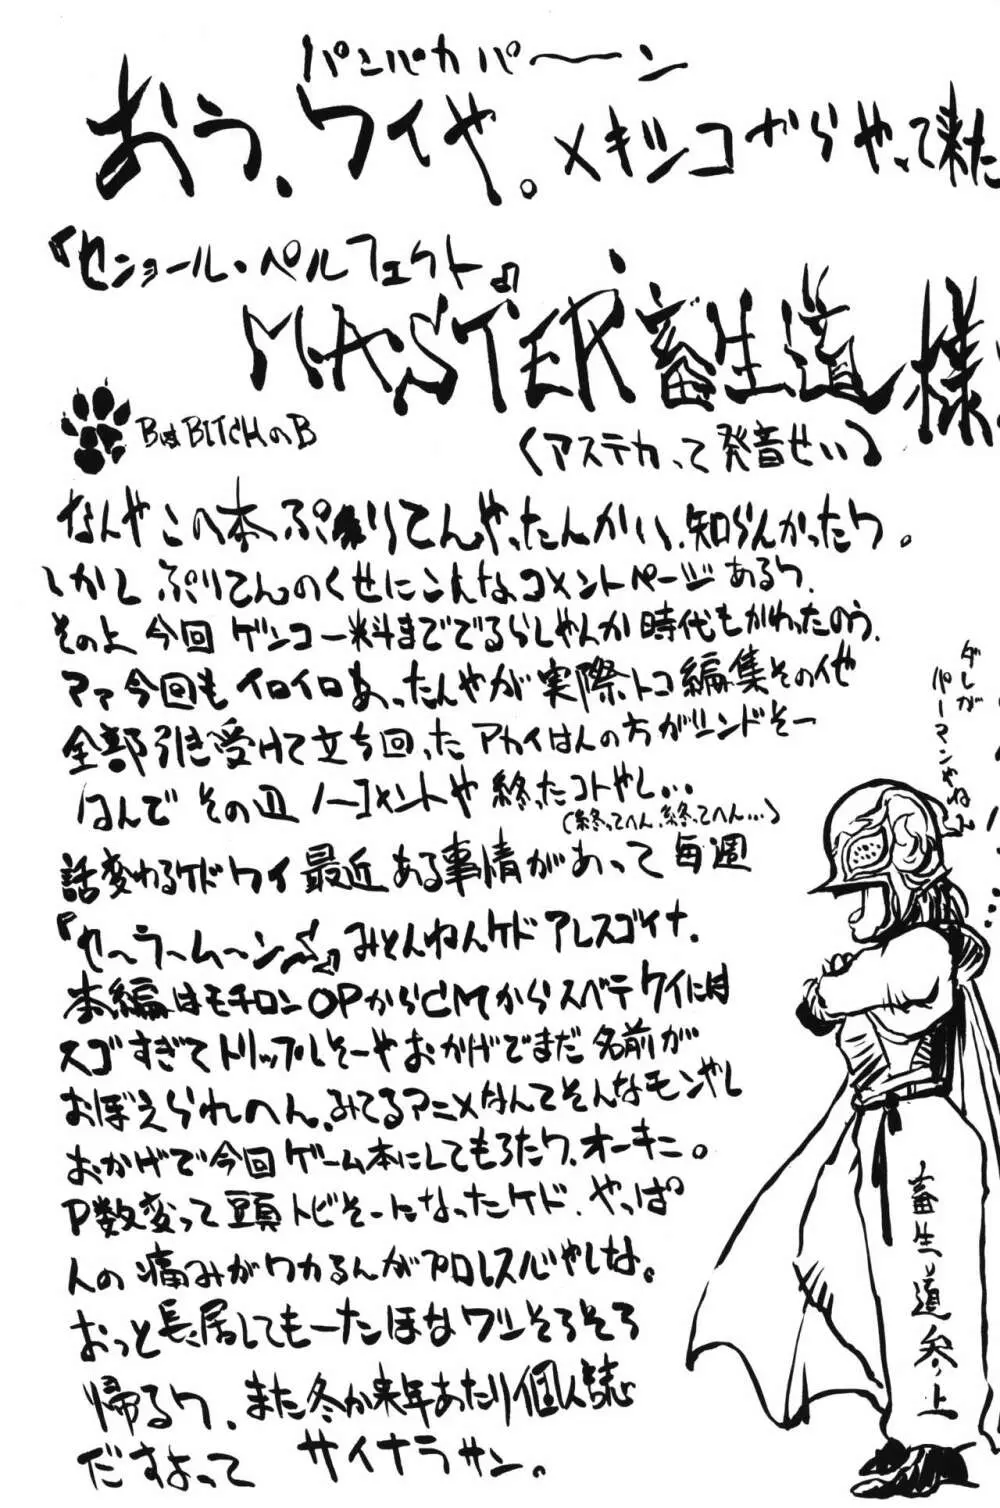 パンパカパーーン
おう、ワイや。メキシコからやって来た
『セニョール・ペルフェクト』
MASTER畜生道様
BはBITCHのB
(アステカって発音せい)
なんやこの本ぷりてんやったんかい、知らんかったワ。
しかしぷりてんのくせにこんなコメントページあるワ。
その上今回ゲンコー料まででるらしやんか時代もかわったのう。
マァ今回もイロイロあったんやが実際トコ編集その他
全部引き受けて立ち回ったアカイはんの方がシンドそー
ほんでその辺ノーコメントや終ったコトやし…
(終ってへん、終ってへん…)
話変わるケドワイ最近ある事情があって毎週
『セーラームーンS』みとんねんケドアレスゴイナ。
本編はモチロンOPからCMからスベテワイには
スゴすぎてトリップしそーやおかげでまだ名前が
おぼえられへん。みてるアニメなんてそんなモンやし
おかげで今回ゲーム本にしてもろたワ、オーキニ。
P数変って頭トビそーになったケド、やっぱ
人の痛みがワカるんがプロレス心やしな。
おっと長居してもーたほなワシそろそろ
帰るワ、また冬か来年あたり個人誌
だすよって サイナラサン。
ダレが
パーマンやねん
畜生道参上